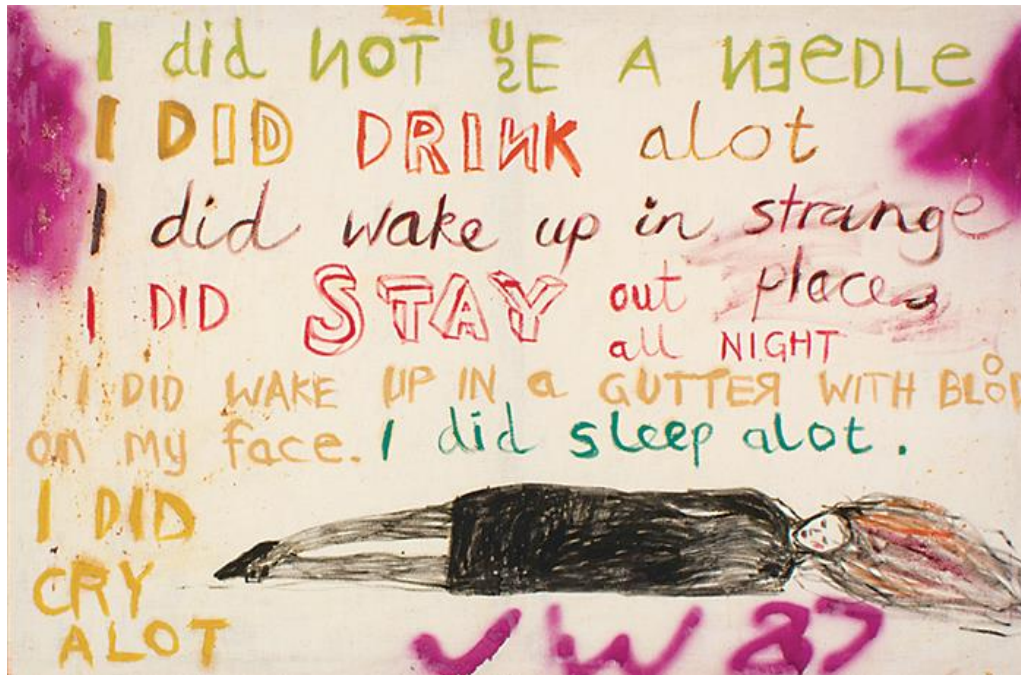 I did NOT USE A NEEDLE
I DID DRINK alot
I did wake up in strange
places
I DID STAY out
all NIGHT
I DID WAKE UP IN a GUTTER WITH BLOOD
on my face. I did sleep alot.
I DID
CRY
ALOT
JW 87